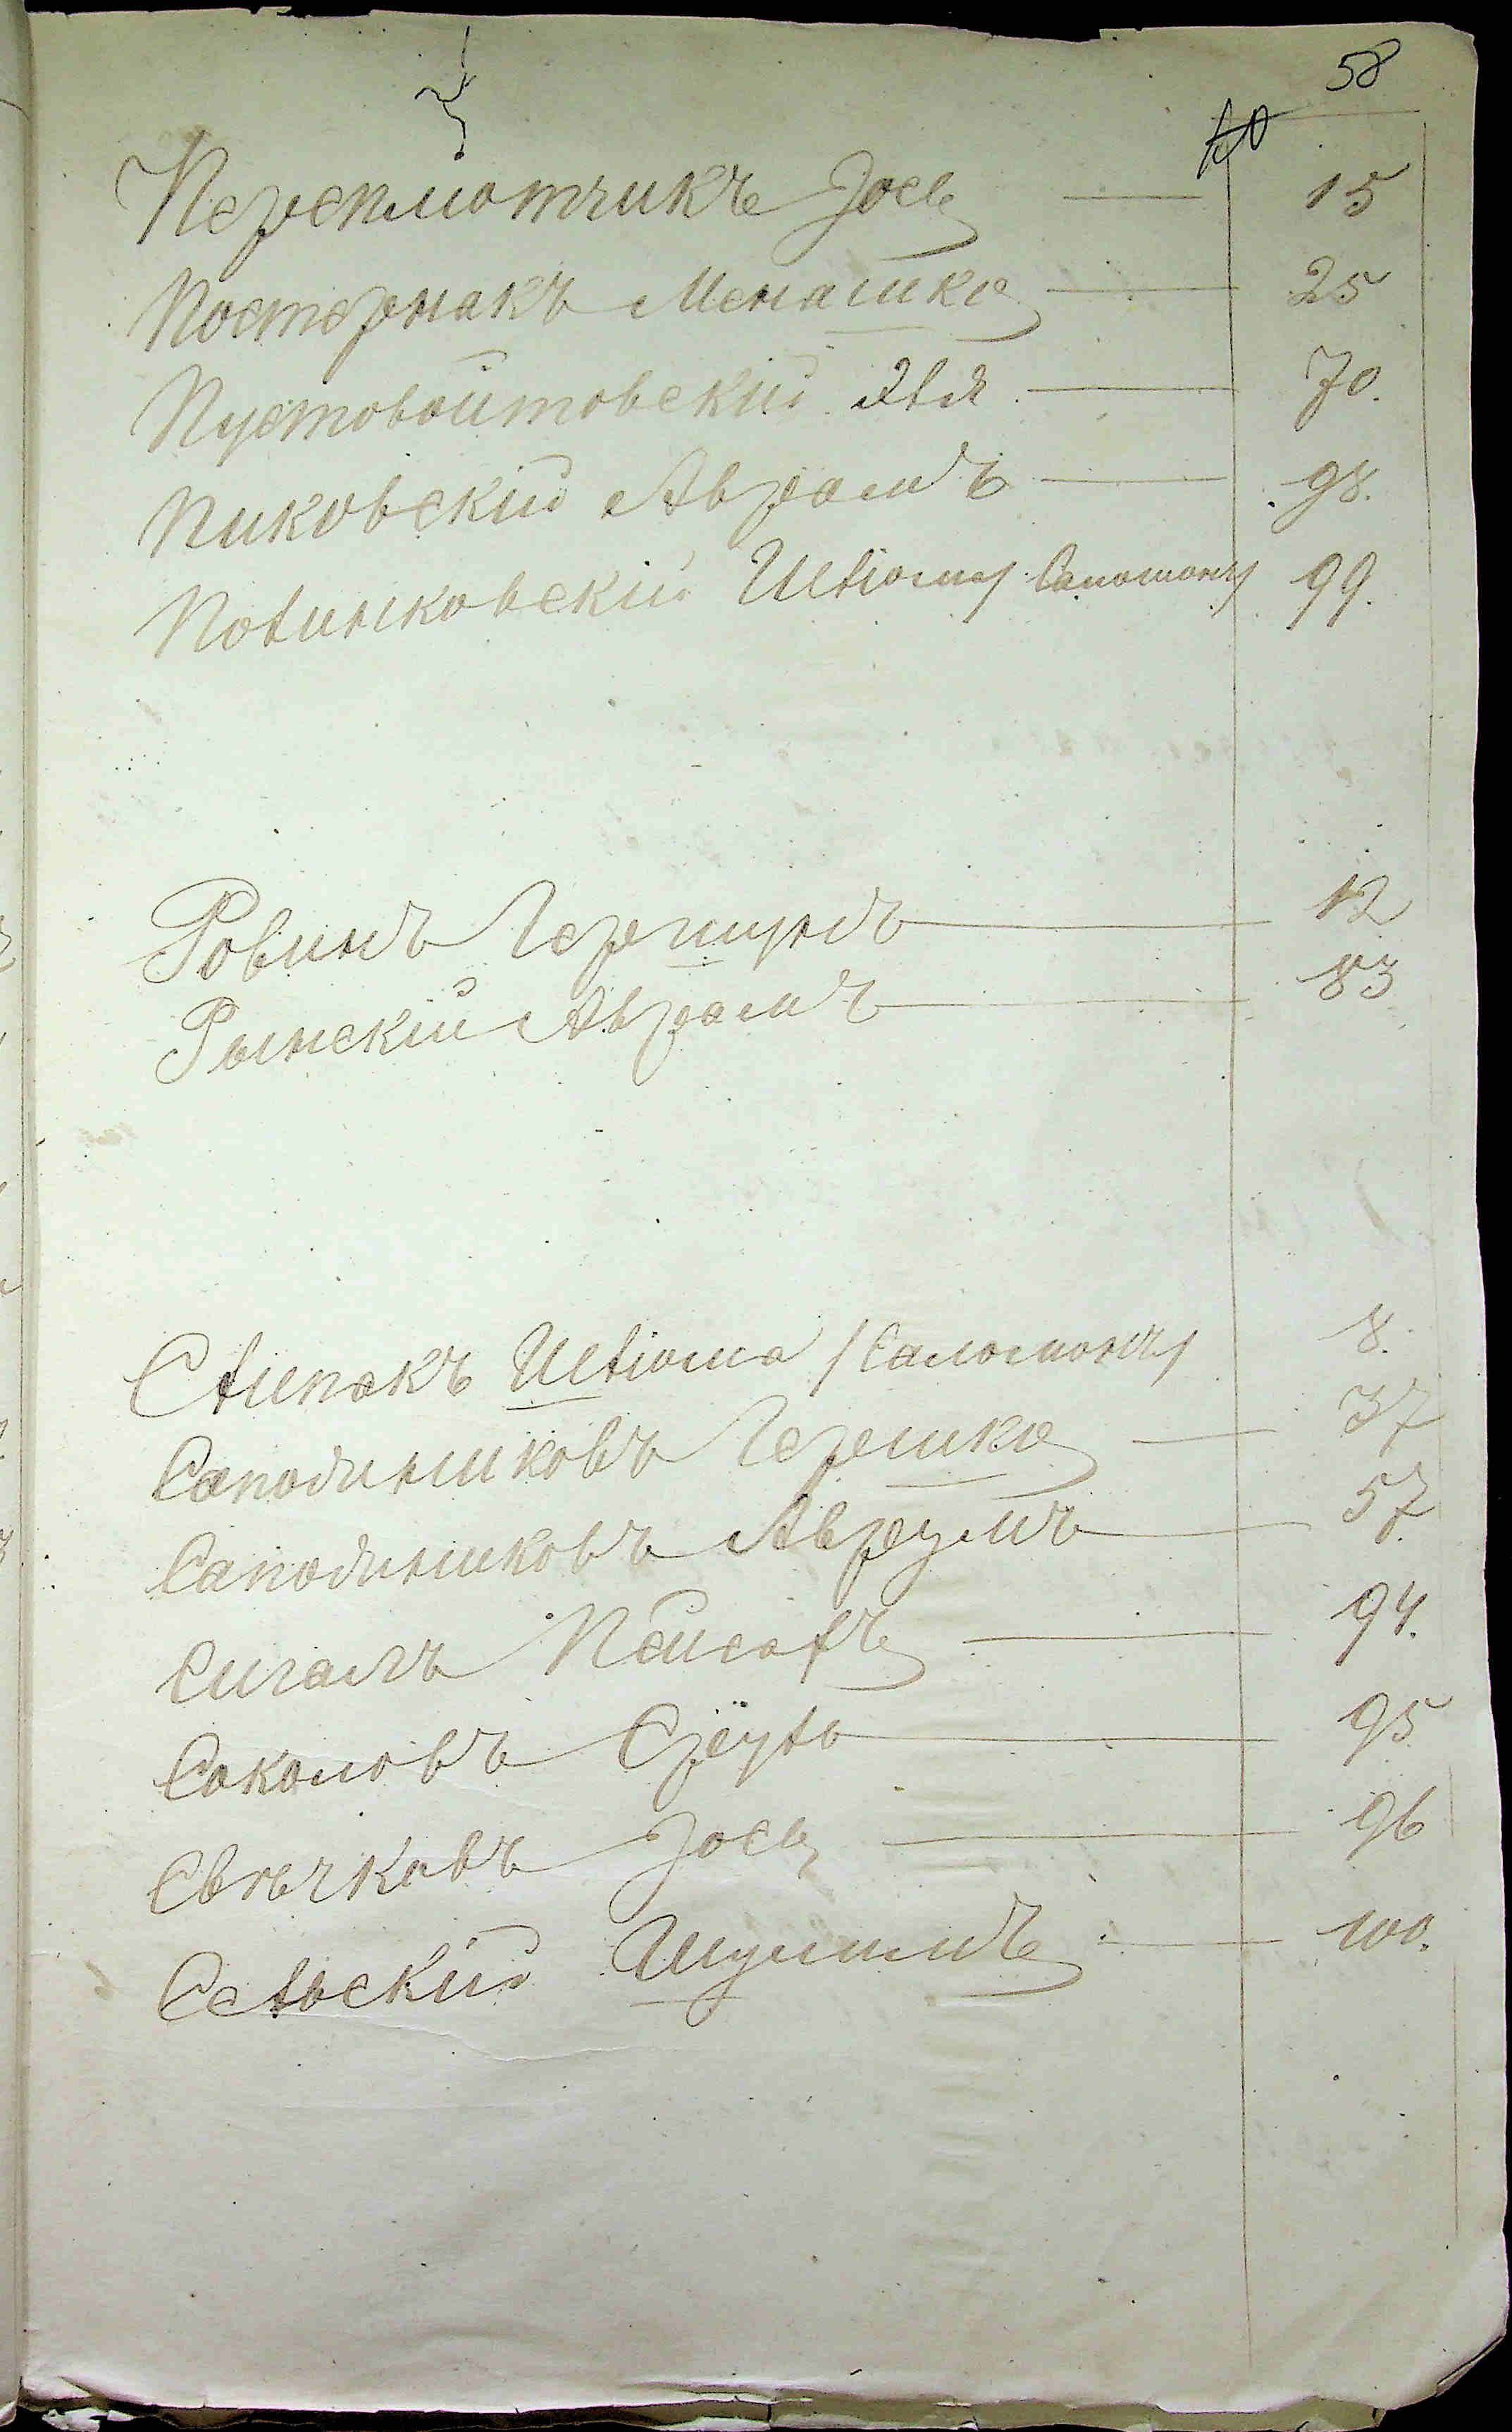 58
60
Переплотчикъ Іось 15
Постернакъ Менашко 25
Пустовойтовский Эля 70.
Пиковский Аврамъ 98.
Полинковский Шліома/Саломонъ/ 99.
Ровинъ Гершунъ 12
Рынский Аврамъ 83
Слипакъ Шліома /Саломонъ/ 8.
Саподинниковъ Гершко 37
Саподинниковъ Аврумъ 57.
Сигалъ Пейсахъ 94.
Соколовъ Сруль 95
Свѣчковъ Іось 96
Сельский Шулимъ 100.